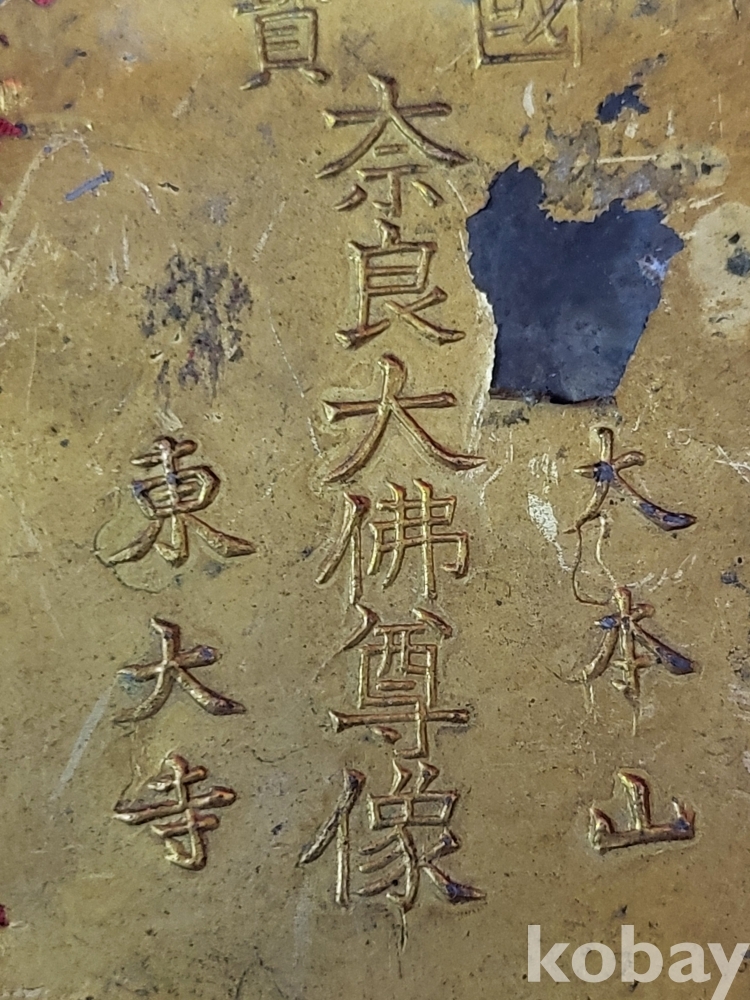 國寶
大本山
奈良大佛尊像
東大寺
kobay